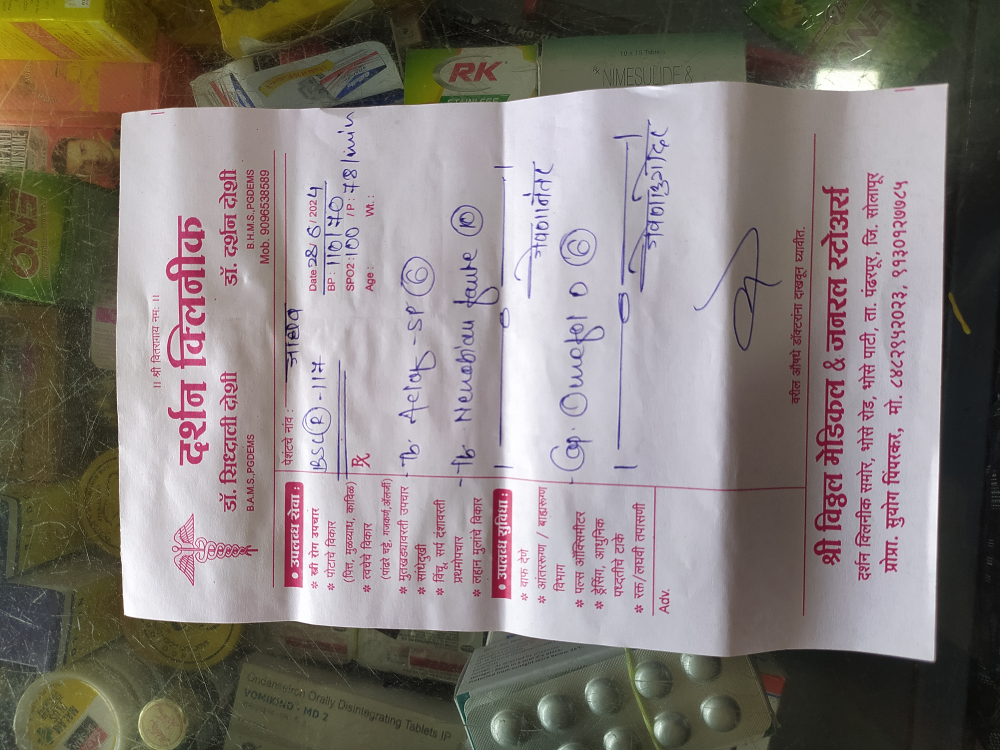 || श्री वितरागाय नमः ||
दर्शन क्लिनीक
डॉ. सिध्दाली दोशी
B.A.M.S.,PGDEMS
डॉ. दर्शन दोशी
B.H.M.S.,PGDEMS
Mob. 9096538589
पेशंटचे नांव : जाधव
Date 28/6/2024
BP : 110/70
SPO2: 100 /P: 78/min
Age : Wt. :
BSL (R) - 117
• उपलब्ध सेवा :
* स्त्री रोग उपचार
* पोटाचे विकार
(पित्त, मुळव्याध, काविळ)
* त्वचेचे विकार
(पांढरे चट्टे, गजकर्ण, ॲलर्जी)
* मुतखड्यावरती उपचार
* सांधेदुखी
* विंचू, सर्प दंशावरती
प्रथमोपचार
* लहान मुलांचे विकार
• उपलब्ध सुविधा :
* वाफ देणे
* आंतररुग्ण / बाह्यरुग्ण
विभाग
* पल्स ऑक्सिमीटर
* ड्रेसिंग, आधुनिक
पध्दतीचे टाके
* रक्त/लघवी तपासणी
Adv.
℞
- Tb. - SP (6)
- Tb Neurobion forte (10)
1 — 0 — 1 जेवणानंतर
- Cap. D (6)
1 — 0 — 1
वरील औषधे डॉक्टरांना दाखवून घ्यावीत.
श्री विठ्ठल मेडिकल & जनरल स्टोअर्स
दर्शन क्लिनीक समोर, भोसे रोड, भोसे पाटी, ता. पंढरपूर, जि. सोलापूर
प्रोप्रा. सुयोग पिंपरकर, मो. ८४८२९५२०२३, ९१३०१२७७८५
RK
10 x 10 Tablets
NIMESULIDE &
Ondansetron Orally Disintegrating Tablets IP
VOMIKIND - MD 2